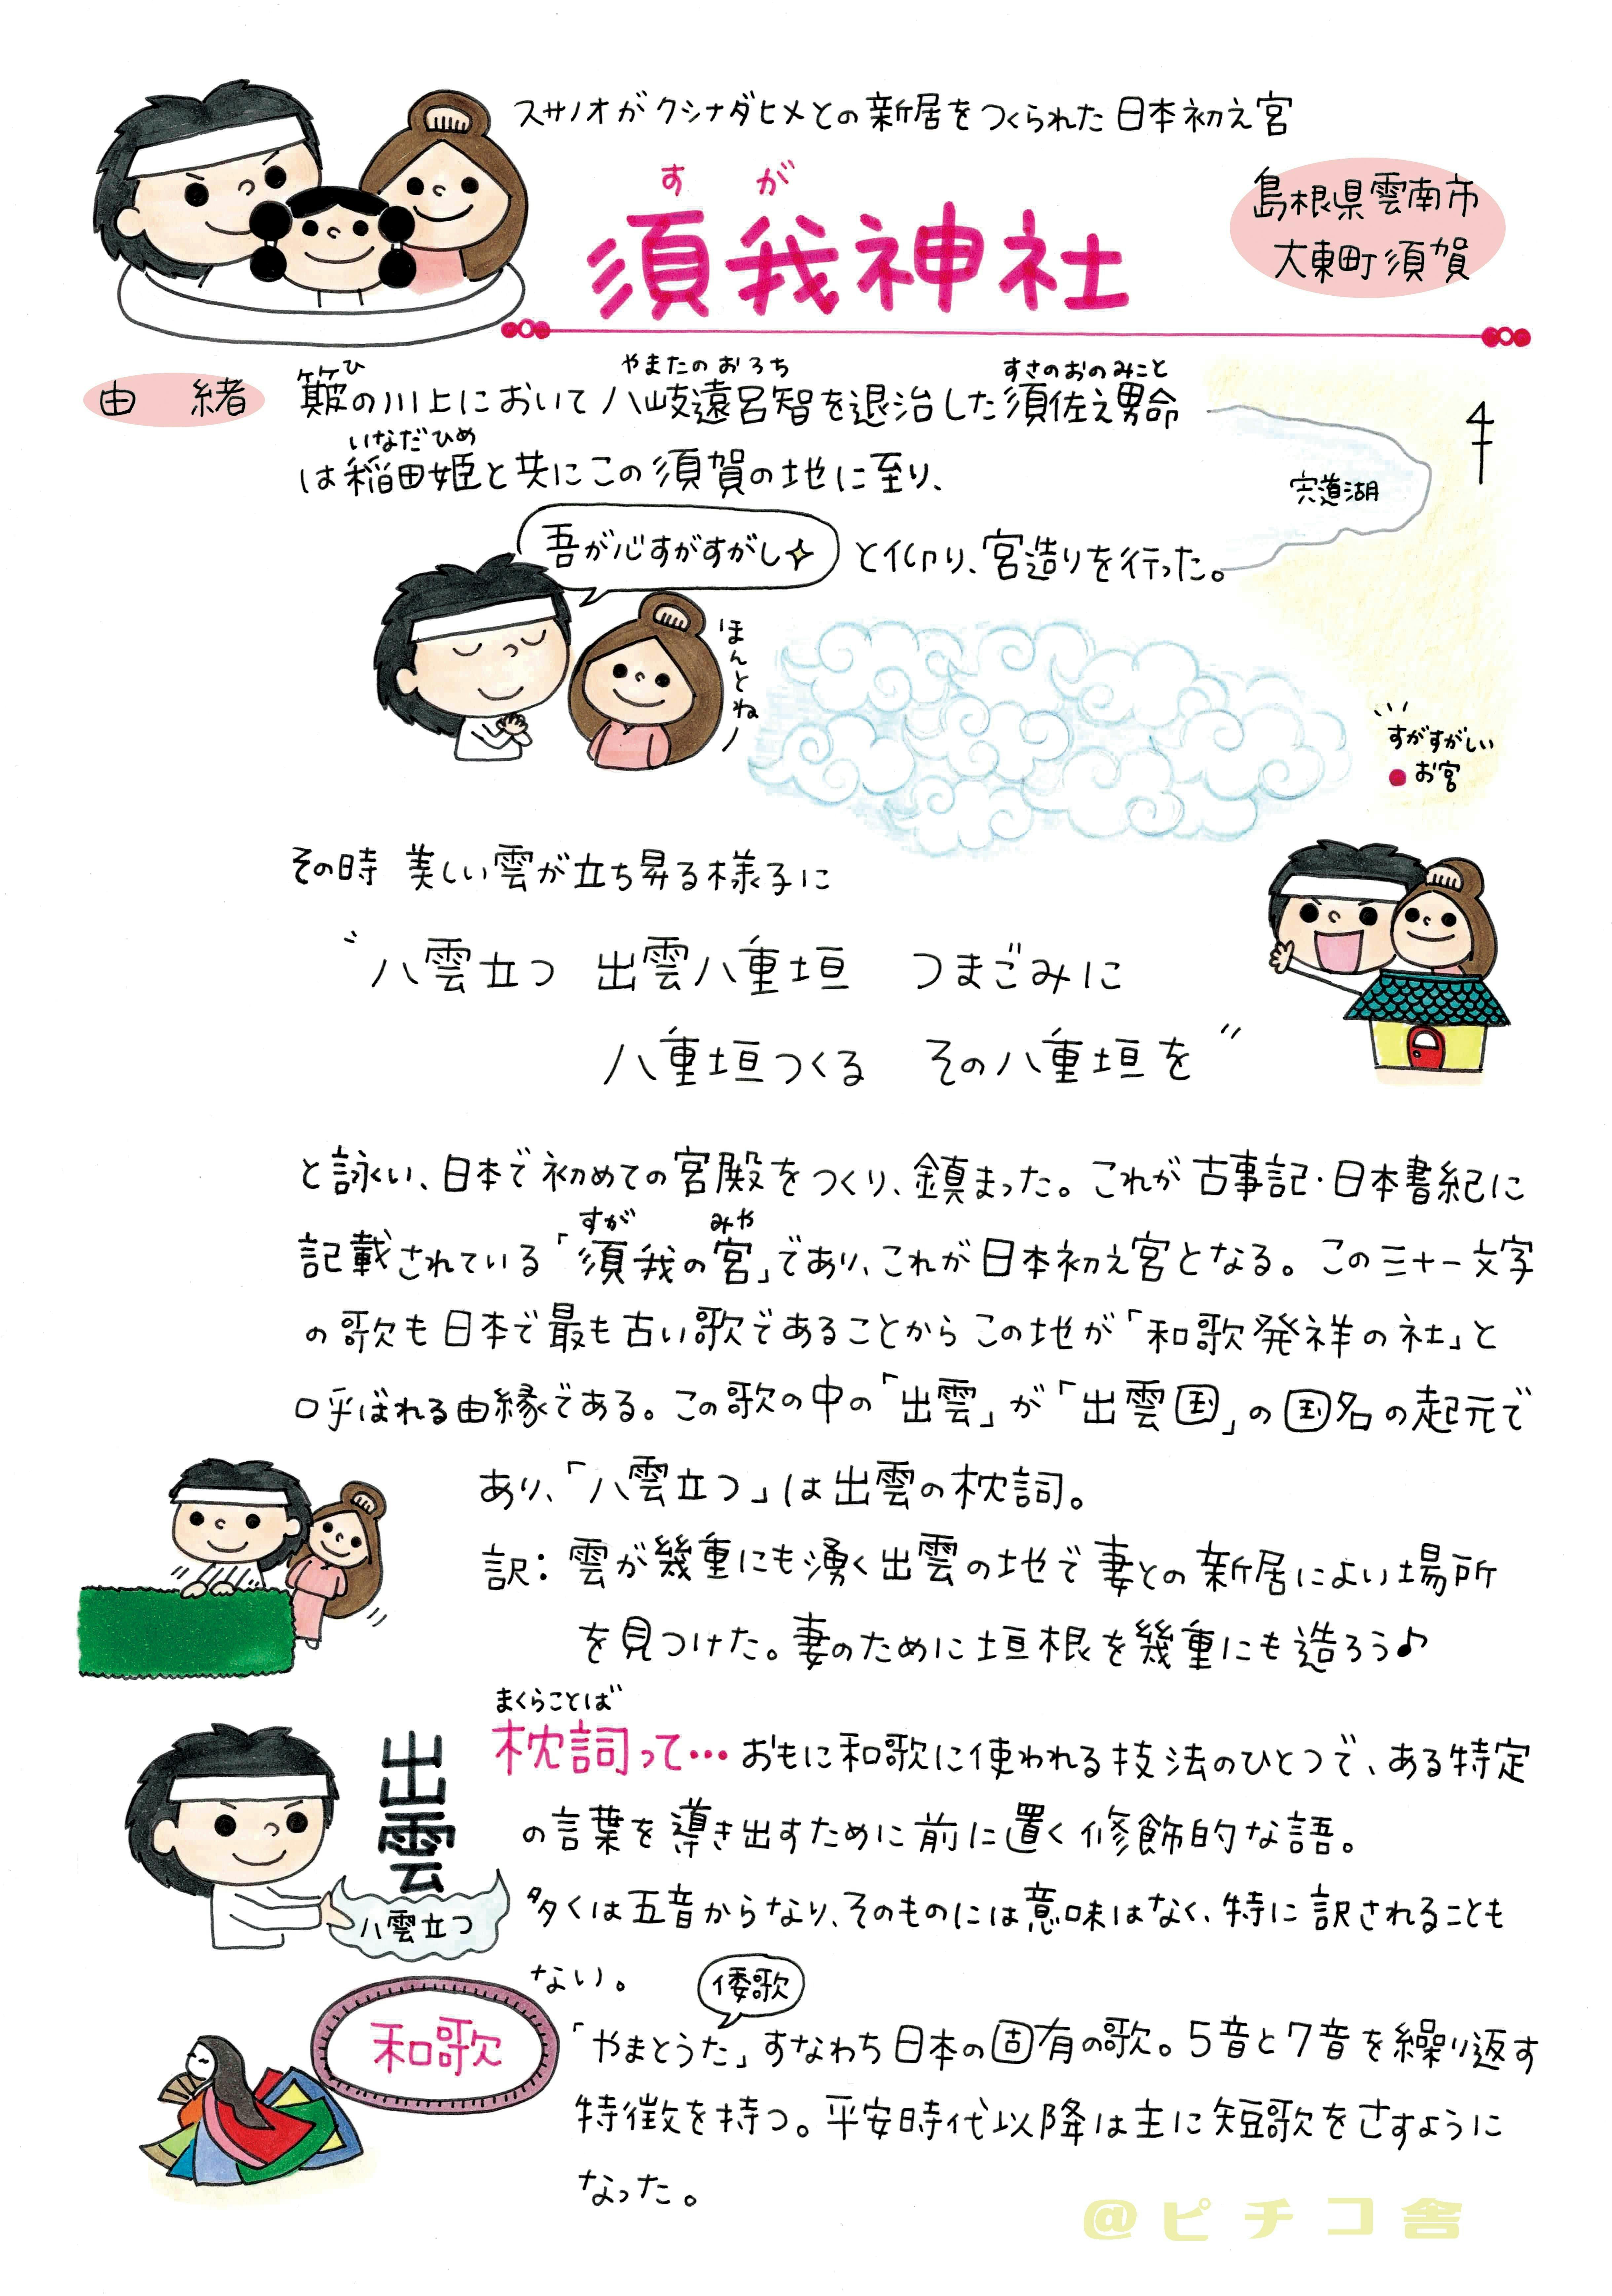 スサノオがクシナダヒメとの新居をつくられた日本初之宮
すが
須我神社
島根県雲南市
大東町須賀
由緒
ひ
やまたのおろち
すさのおのみこと
簸の川上において八岐遠呂智を退治した須佐之男命
いなだひめ
は稲田姫と共にこの須賀の地に至り、
吾が心すがすがし
と仰り、宮造りを行った。
ほんとね
宍道湖
すがすがしい
お宮
その時 美しい雲が立ち昇る様子に
〝八雲立つ 出雲八重垣 つまごみに
八重垣つくる その八重垣を〟
と詠い、日本で初めての宮殿をつくり、鎮まった。これが古事記・日本書紀に
すが みや
記載されている「須我の宮」であり、これが日本初之宮となる。この三十一文字
の歌も日本で最も古い歌であることからこの地が「和歌発祥の社」と
呼ばれる由縁である。この歌の中の「出雲」が「出雲国」の国名の起元で
あり、「八雲立つ」は出雲の枕詞。
訳：雲が幾重にも湧く出雲の地で妻との新居によい場所
を見つけた。妻のために垣根を幾重にも造ろう♪
まくらことば
枕詞って… おもに和歌に使われる技法のひとつで、ある特定
の言葉を導き出すために前に置く修飾的な語。
多くは五音からなり、そのものには意味はなく、特に訳されることも
ない。
出雲
八雲立つ
倭歌
和歌
「やまとうた」すなわち日本の固有の歌。5音と7音を繰り返す
特徴を持つ。平安時代以降は主に短歌をさすように
なった。
@ピチコ舎